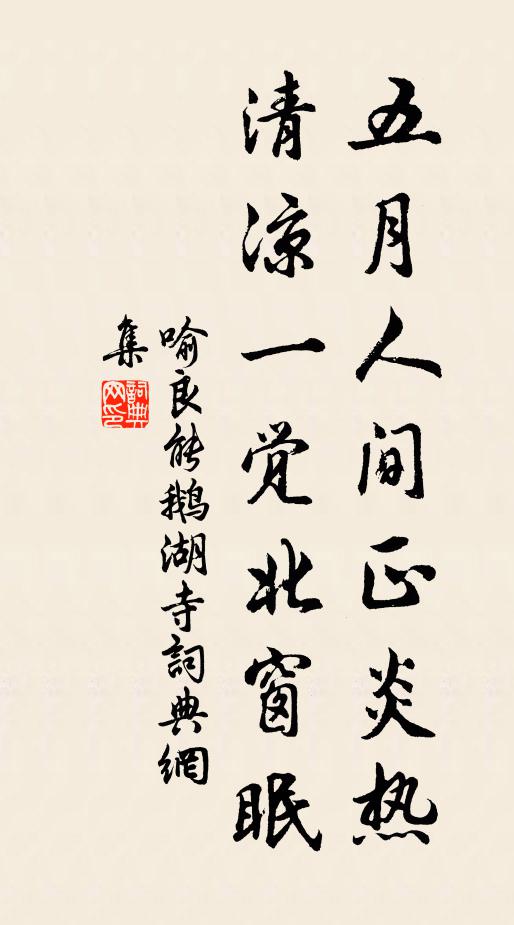 五月人间正炎热
清凉一觉北窗眠
喻良能鹅湖寺詞典網
集
詞典
网印